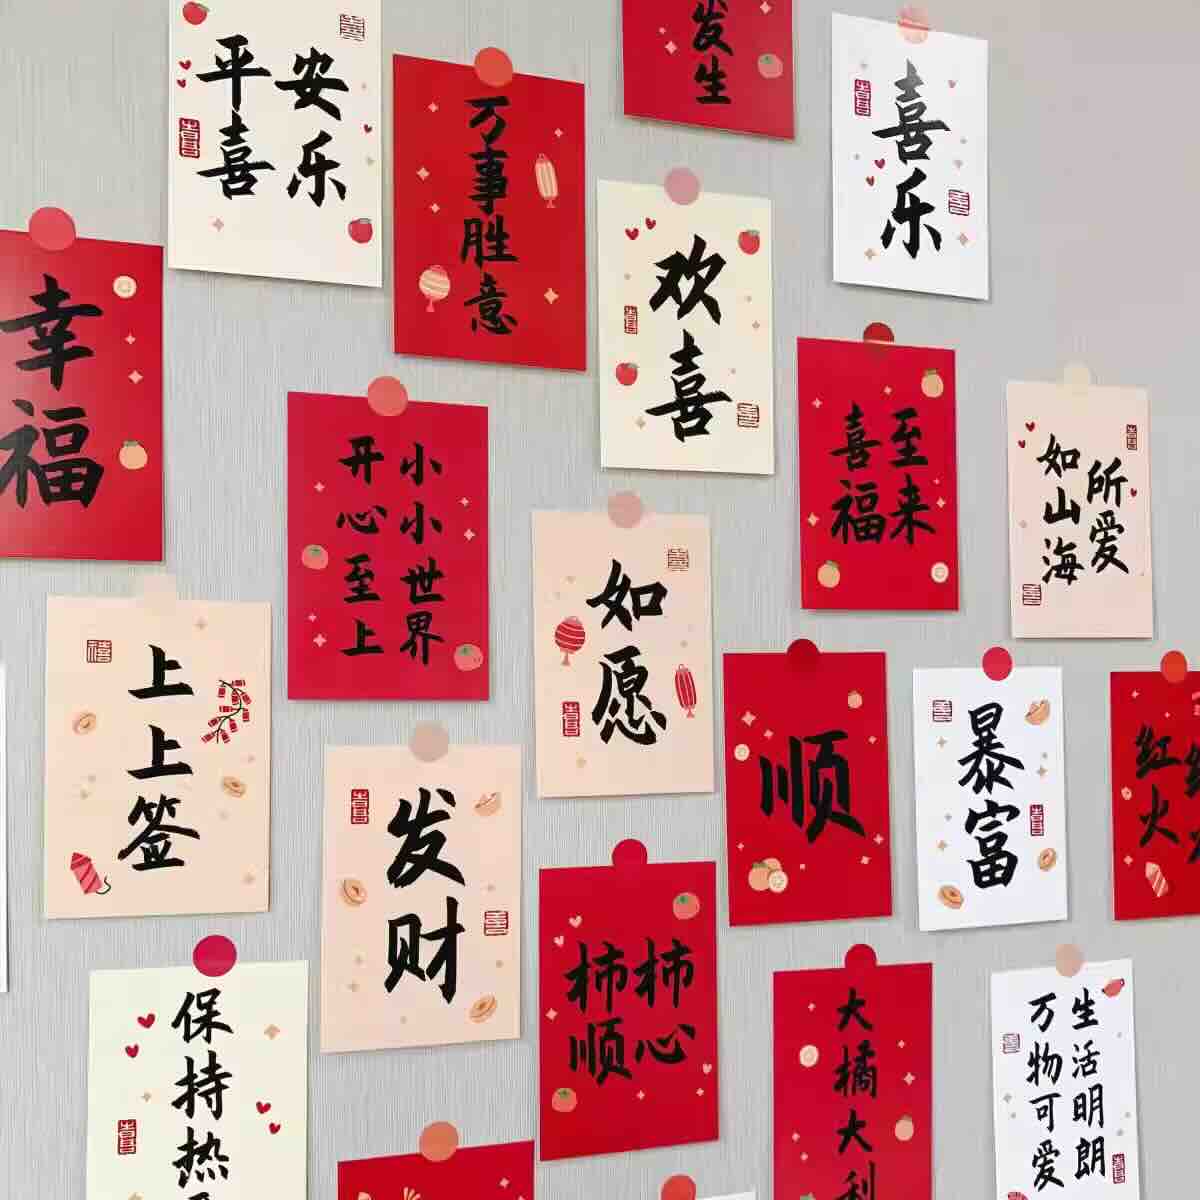 平安
喜乐
万事胜意
发生
喜乐
幸福
欢喜
小小世界
开心至上
至来
喜福
所爱
如山海
上上签
如愿
发财
顺
暴富
红火
保持热
柿柿
顺心
大橘大利
生活明朗
万物可爱